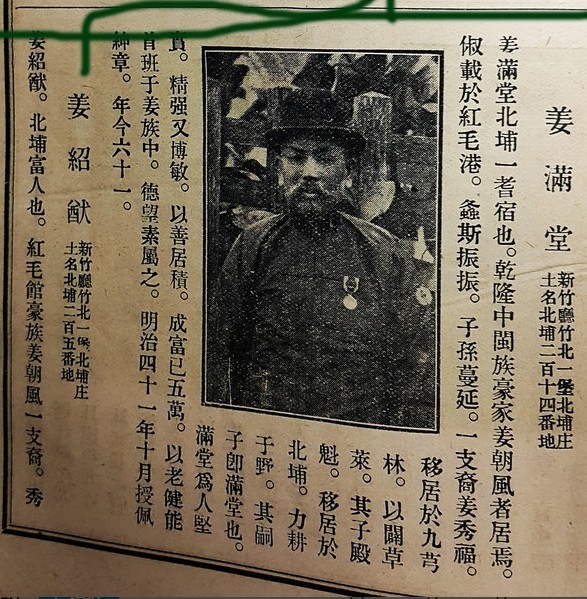 姜滿堂
新竹廳竹北一堡北埔庄
土名北埔二百十四番地
姜滿堂北埔一耆宿也。乾隆中閩族豪家姜朝風者居焉。
俶載於紅毛港。螽斯振振。子孫蔓延。一支裔姜秀福。
移居於九芎
林。以闢草
萊。其子殿
魁。移居於
北埔。力耕
于野。其嗣
子卽滿堂也。
滿堂爲人堅
實。精强又博敏。以善居積。成富已五萬。以老健能
首班于姜族中。德望素屬之。明治四十一年十月授佩
紳章。年今六十一。
姜紹猷
新竹廳竹北一堡北埔庄
土名北埔二百五番地
姜紹猷。北埔富人也。紅毛館豪族姜朝風一支裔。秀